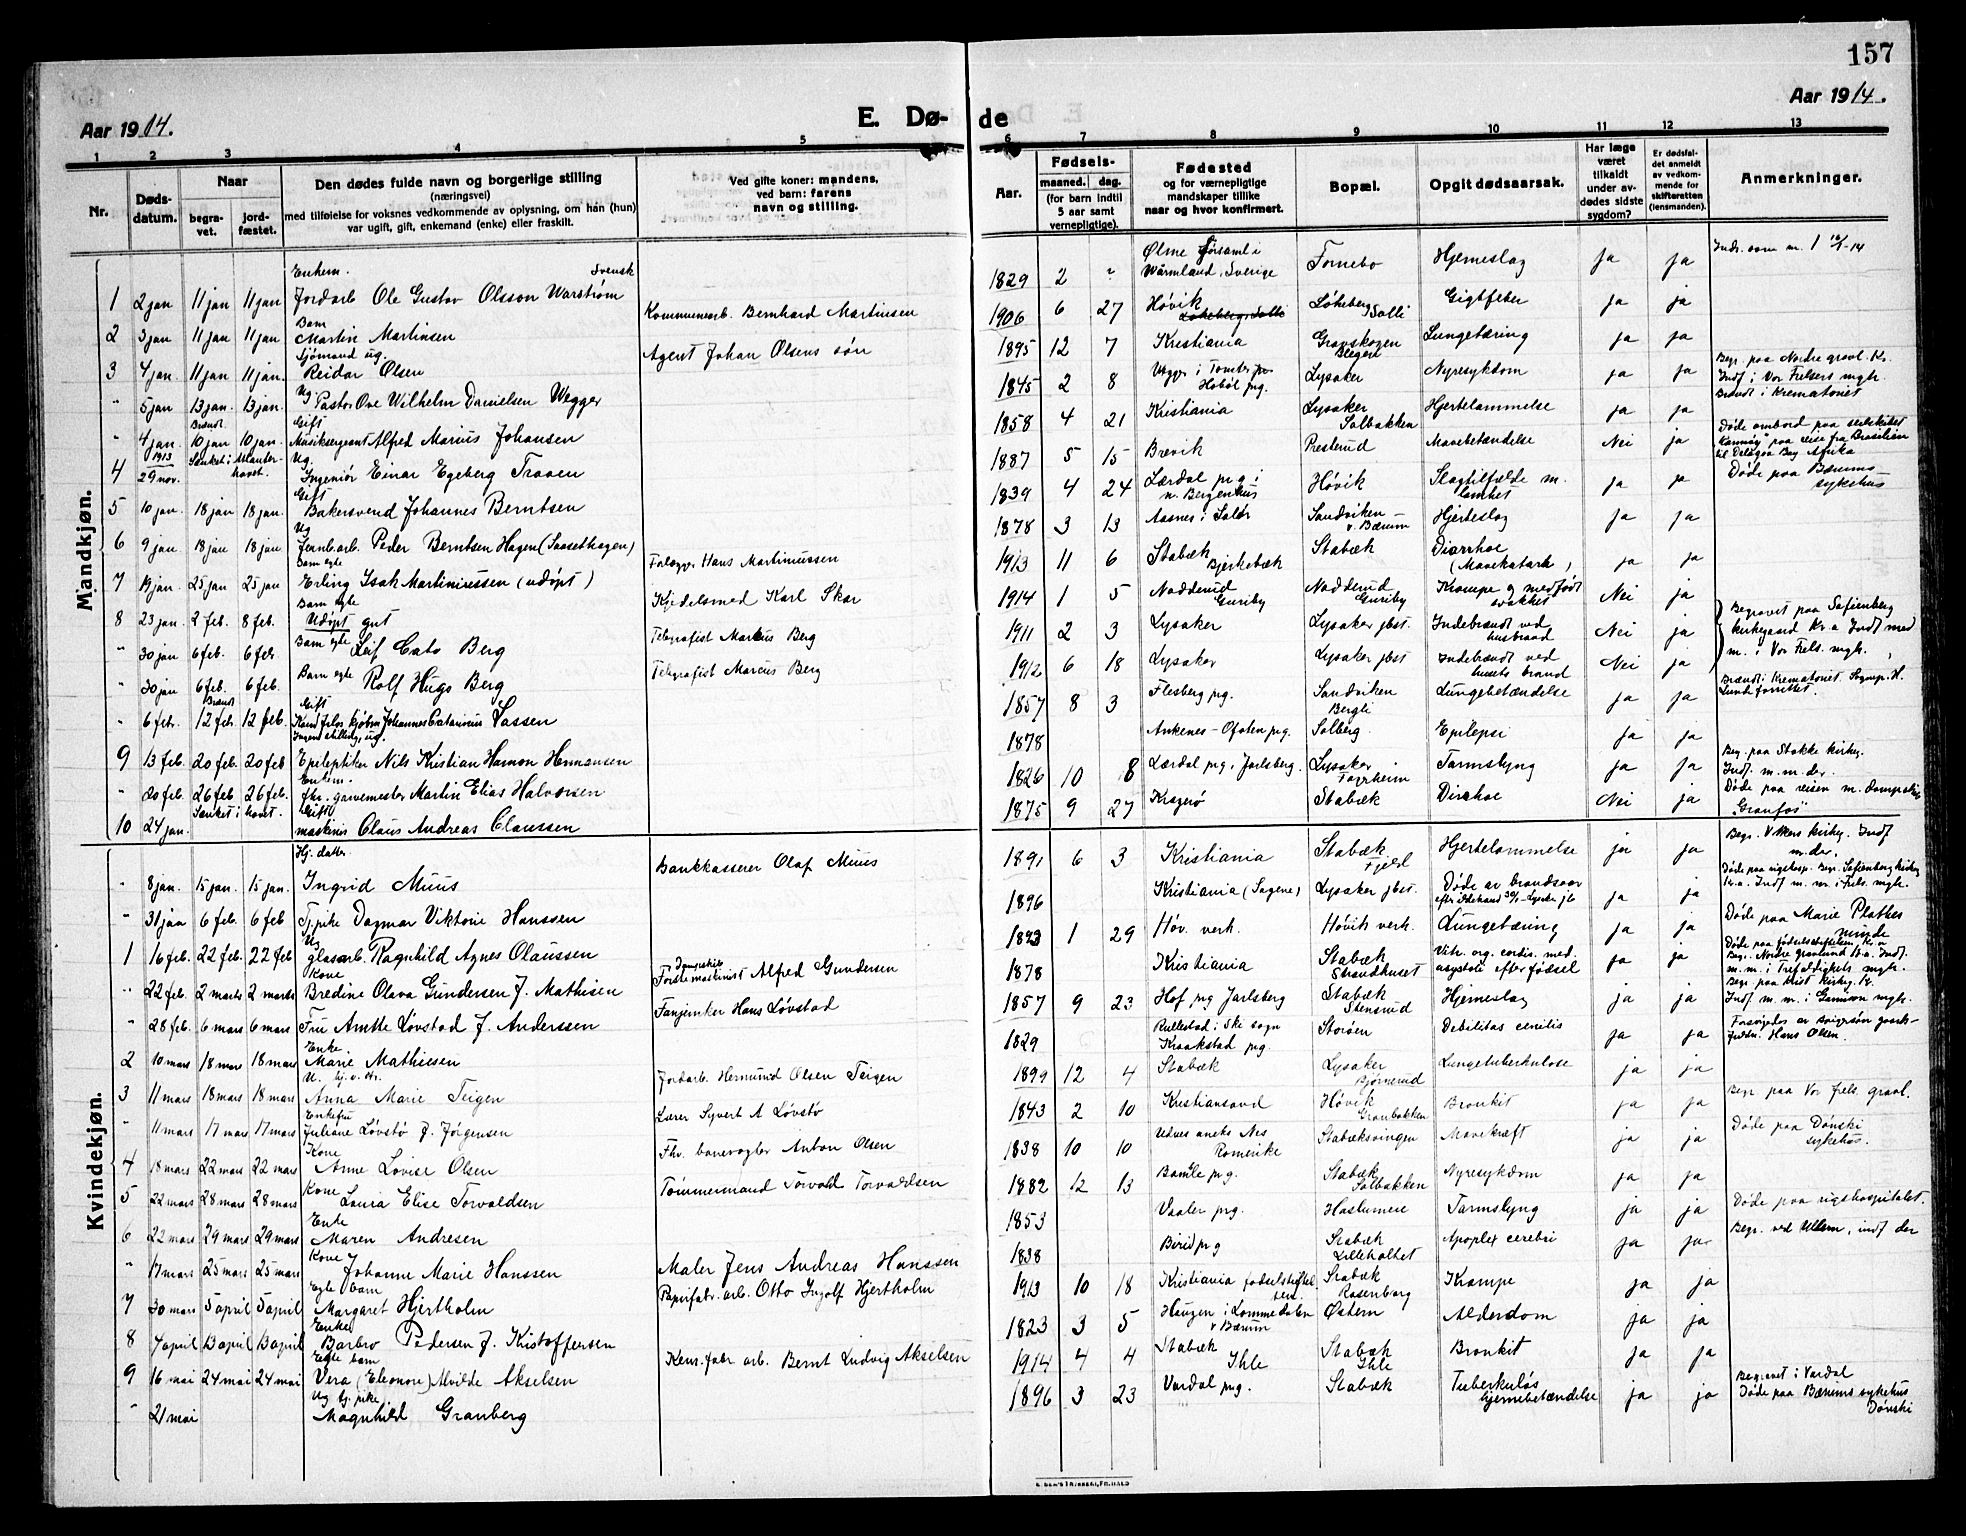 157
Aar 1914.
E. Dø-
de
Aar 1914.
1 2 3 4 5 6 7 8 9 10 11 12 13
Nr.
Døds-
datum.
Naar
begra-
vet.
jord-
fæstet.
Den dødes fulde navn og borgerlige stilling
(næringsvei)
med tilføielse for voksnes vedkommende av oplysning, om han (hun)
var ugift, gift, enkemand (enke) eller fraskilt.
Ved gifte koner: mandens,
ved barn: farens
navn og stilling.
Aar.
Fødsels-
maaned. dag.
(for barn indtil
5 aar samt
vernepligtige).
Fødested
og for værnepligtige
mandskaper tillike
naar og hvor konfirmert.
Bopæl.
Opgit dødsaarsak.
Har læge
været
tilkaldt
under av-
dødes sidste
sygdom?
Er dødsfal-
det anmeldt
av vedkom-
mende for
skifteretten
(lensmanden).
Anmerkninger.
Mandkjøn.
Enkem. Svensk
1 2 jan 11 jan 11 jan Jordarb Ole Gustav Olsson Warstrøm 1829 2 " Ølme församl i Wärmland, Sverige Fornebo Hjerneslag ja ja
Barn
2 3 jan 11 jan 11 jan Martin Martinsen Kommunearb. Bernhard Martinsen 1906 6 27 Høvik Løkeberg Solli Gigtfeber ja ja
Sjömand ug.
3 4 jan. 11 jan 11 jan. Reidar Olsen Agent Johan Olsens søn 1895 12 7 Kristiania Granskogen Lungetæring ja ja
Ug
" 5 jan 13 jan. 13 jan. Pastor Ove Wilhelm Danielsen Wegger 1845 2 8 Hobøl prg. Lysaker Nyresykdom ja ja Begr. paa Nordre gravl. Kr. Indf i Vor Frelsers mgh. Brændt i Krematoriet
Brændt Gift
" 4 jan. 10 jan 10 jan. Musiksergeant Alfred Marius Johansen 1858 4 21 Kristiania Lysaker Solbakken Hjertelammelse ja ja
1913 Sænket i Atlanter- havet. Ug.
4 29 nov. Ingeniør Einar Egeberg Traaen 1887 5 15 Brevik Presterud Mavebetændelse Nei ja Døde ombord paa seilskibet paa reise fra Brasilien til Delagoa Bay Afrika
Gift
5 10 jan 18 jan 18 jan. Bakersvend Johannes Berntsen 1839 4 24 Lærdal prg i n. Bergenhus Høvik Slagtilfælde m. lamhet ja ja Døde paa Bærums sykehus
Ug
6 9 jan 18 jan 18 jan Jernb.arb. Peder Berntsen Hagen (Saasethagen) 1878 3 13 Aasnes i Solør Sandviken v. Bærum Hjerteslag ja ja
Barn egte
7 19 jan. 25 jan 25 jan Erling Isak Martiniussen (udöpt) Hans Martiniussen 1913 11 6 Stabæk Bjerkebæk Stabæk Diarrhoe (Mavekatarh) ja ja
Barn egte
8 23 jan. 2 feb. 8 feb. Udöpt gut Kjedelsmed Karl Skar 1914 1 5 Nadderud Guriby Nadderud Guriby Krampe og medfødt svakhet Nei ja
Barn egte
" 30 jan 6 feb. 6 feb Leif Cato Berg Telegrafist Markus Berg 1911 2 3 Lysaker Lysaker jbst. Indebrændt ved husbrand Nei ja Begravet paa Sofienberg kirkegaard Kr.a Indf med m. i Vor Frels. mgh.
Barn egte
" 30 jan 6 feb. 6 feb. Rolf Hugo Berg Telegrafist Marcus Berg 1912 6 18 Lysaker Lysaker jbst Indebrændt ved husets brand Nei ja
Brændt Gift
" 6 feb. 12 feb. 12 feb. Lassen 1857 8 3 Flesberg prg. Sandviken Bergli Lungebetændelse ja ja Brændt i Krematoriet
Ingen stilling, ug.
9 13 feb. 20 feb. 20 feb Epileptiker Nils Kristian Hermansen 1878 Ankenes - Ofoten prg. Solberg Epilepsi ja ja
Enkem.
" 20 feb. 26 feb 26 feb. fhv. garvermester Martin Elias Halvorsen 1826 10 8 Jarlsberg. Lysaker Tarmslyng ja ja Begr. paa Stokke kirkg. Indf. m.m. der.
Sænket i havet. Gift
10 24 jan. maskinis Claus Andreas Claussen 1875 9 27 Kragerø Stabæk Diarrhoe Nei ja Døde paa reisen m. dampskib "Granfos"
Kvindekjøn.
Hj. datter
" 8 jan. 15 jan. 15 jan. Ingrid Muus Bankkasserer Olaf Muus 1891 6 3 Kristiania Stabæk Fjeld Hjertelammelse ja ja Begr. V. Akers kirkg. Indf m. der.
" 31 jan 6 feb. 6 feb Tj.pike Dagmar Viktorie Hanssen 1896 Kristiania (Sagene) Lysaker jbst. Døde av brandsaar ja ja
Ug
1 16 feb. 22 feb. 22 feb glasarb. Ragnhild Agnes Olaussen 1893 1 29 Høv. verk. Høvik verk. Lungetæring ja ja Døde paa Marie Plathes minde
Kone
" 22 feb. 2 marts 2 marts Bredine Olava Gundersen f. Mathisen Alfred Gundersen 1878 Kristiania Stabæk Strandhuset ja ja
" 28 feb. 6 mars 6 mars Fru Anette Løvstad f. Anderssen Fanjunker Hans Løvstad 1857 9 23 Hof prg Jarlsberg Stabæk Stensrud Hjerneslag ja ja
Enke
2 10 mars 18 mar 18 mars Marie Mathiesen 1829 Rullestad i Ski sogn Kraakstad prg. Storøen Debilitas cenilis ja ja
3 11 mars 18 mars 18 mars Anna Marie Teigen Jordarb. Hermund Olsen Teigen 1899 12 4 Stabæk Lysaker Bjørnerud Lungetuberkulose ja ja
Enkefru
" 11 mars 17 mars 17 mars Juliane Løvstø f. Jørgensen Lærer Syvert A Løvstø 1843 2 10 Kristiansand Høvik Granbakken Bronkit ja ja Begr paa Vor frels. gravl.
Kone
4 18 mars 22 mars 22 mars Anne Lovise Olsen Fhv. banevogter Anton Olsen 1838 10 10 Udnes aneks Nes Romerike Stabæksvingen Mavekræft ja ja Døde paa Dønski sykehus.
Kone
5 22 mars 28 mars 28 mars Laura Elise Torvaldsen Tømmermand Torvald Torvaldsen 1882 12 13 Bamle prg. Stabæk Solbakken Nyresykdom ja ja
Enke
6 22 mars 29 mars 29 mars Maren Andresen 1853 Vaaler prg. Haslumseie Tarmslyng ja ja Døde paa rigshospitalet.
Kone
" 17 mars 25 mars 25 mars Johanne Marie Hanssen Maler Jens Andreas Hanssen 1838 Birid prg Stabæk Lilleholtet Apoplex cerebri ja ja Begr. ved Ullern, indf der
Egte barn
7 30 mars 5 april 5 april Margaret Hjertholm Papirfabr. arb. Otto Ingolf Hjertholm 1913 10 18 Kristiania fødselstiftelsen Stabæk Rosenborg Krampe ja ja
Enke
8 7 april 13 april 13 april Barbro Pedersen f. Kristoffersen 1823 3 5 Haugen i Lommedalen v Bærum Østern Alderdom ja ja
Egte barn
9 16 mai 24 mai 24 mai Vera (Eleonore) Alvilde Akselsen Kem. fabr arb. Bernt Ludvig Akselsen 1914 4 4 Stabæk Ihle Stabæk Ihle Bronkit ja ja
Ug tj. pike
" 21 mai Magnhild Granberg 1896 3 23 Vardal prg. Stabæk Tuberkuløs hjernebetændelse ja ja Begravet i Vardal Døde paa Bærums sykehus Dønski